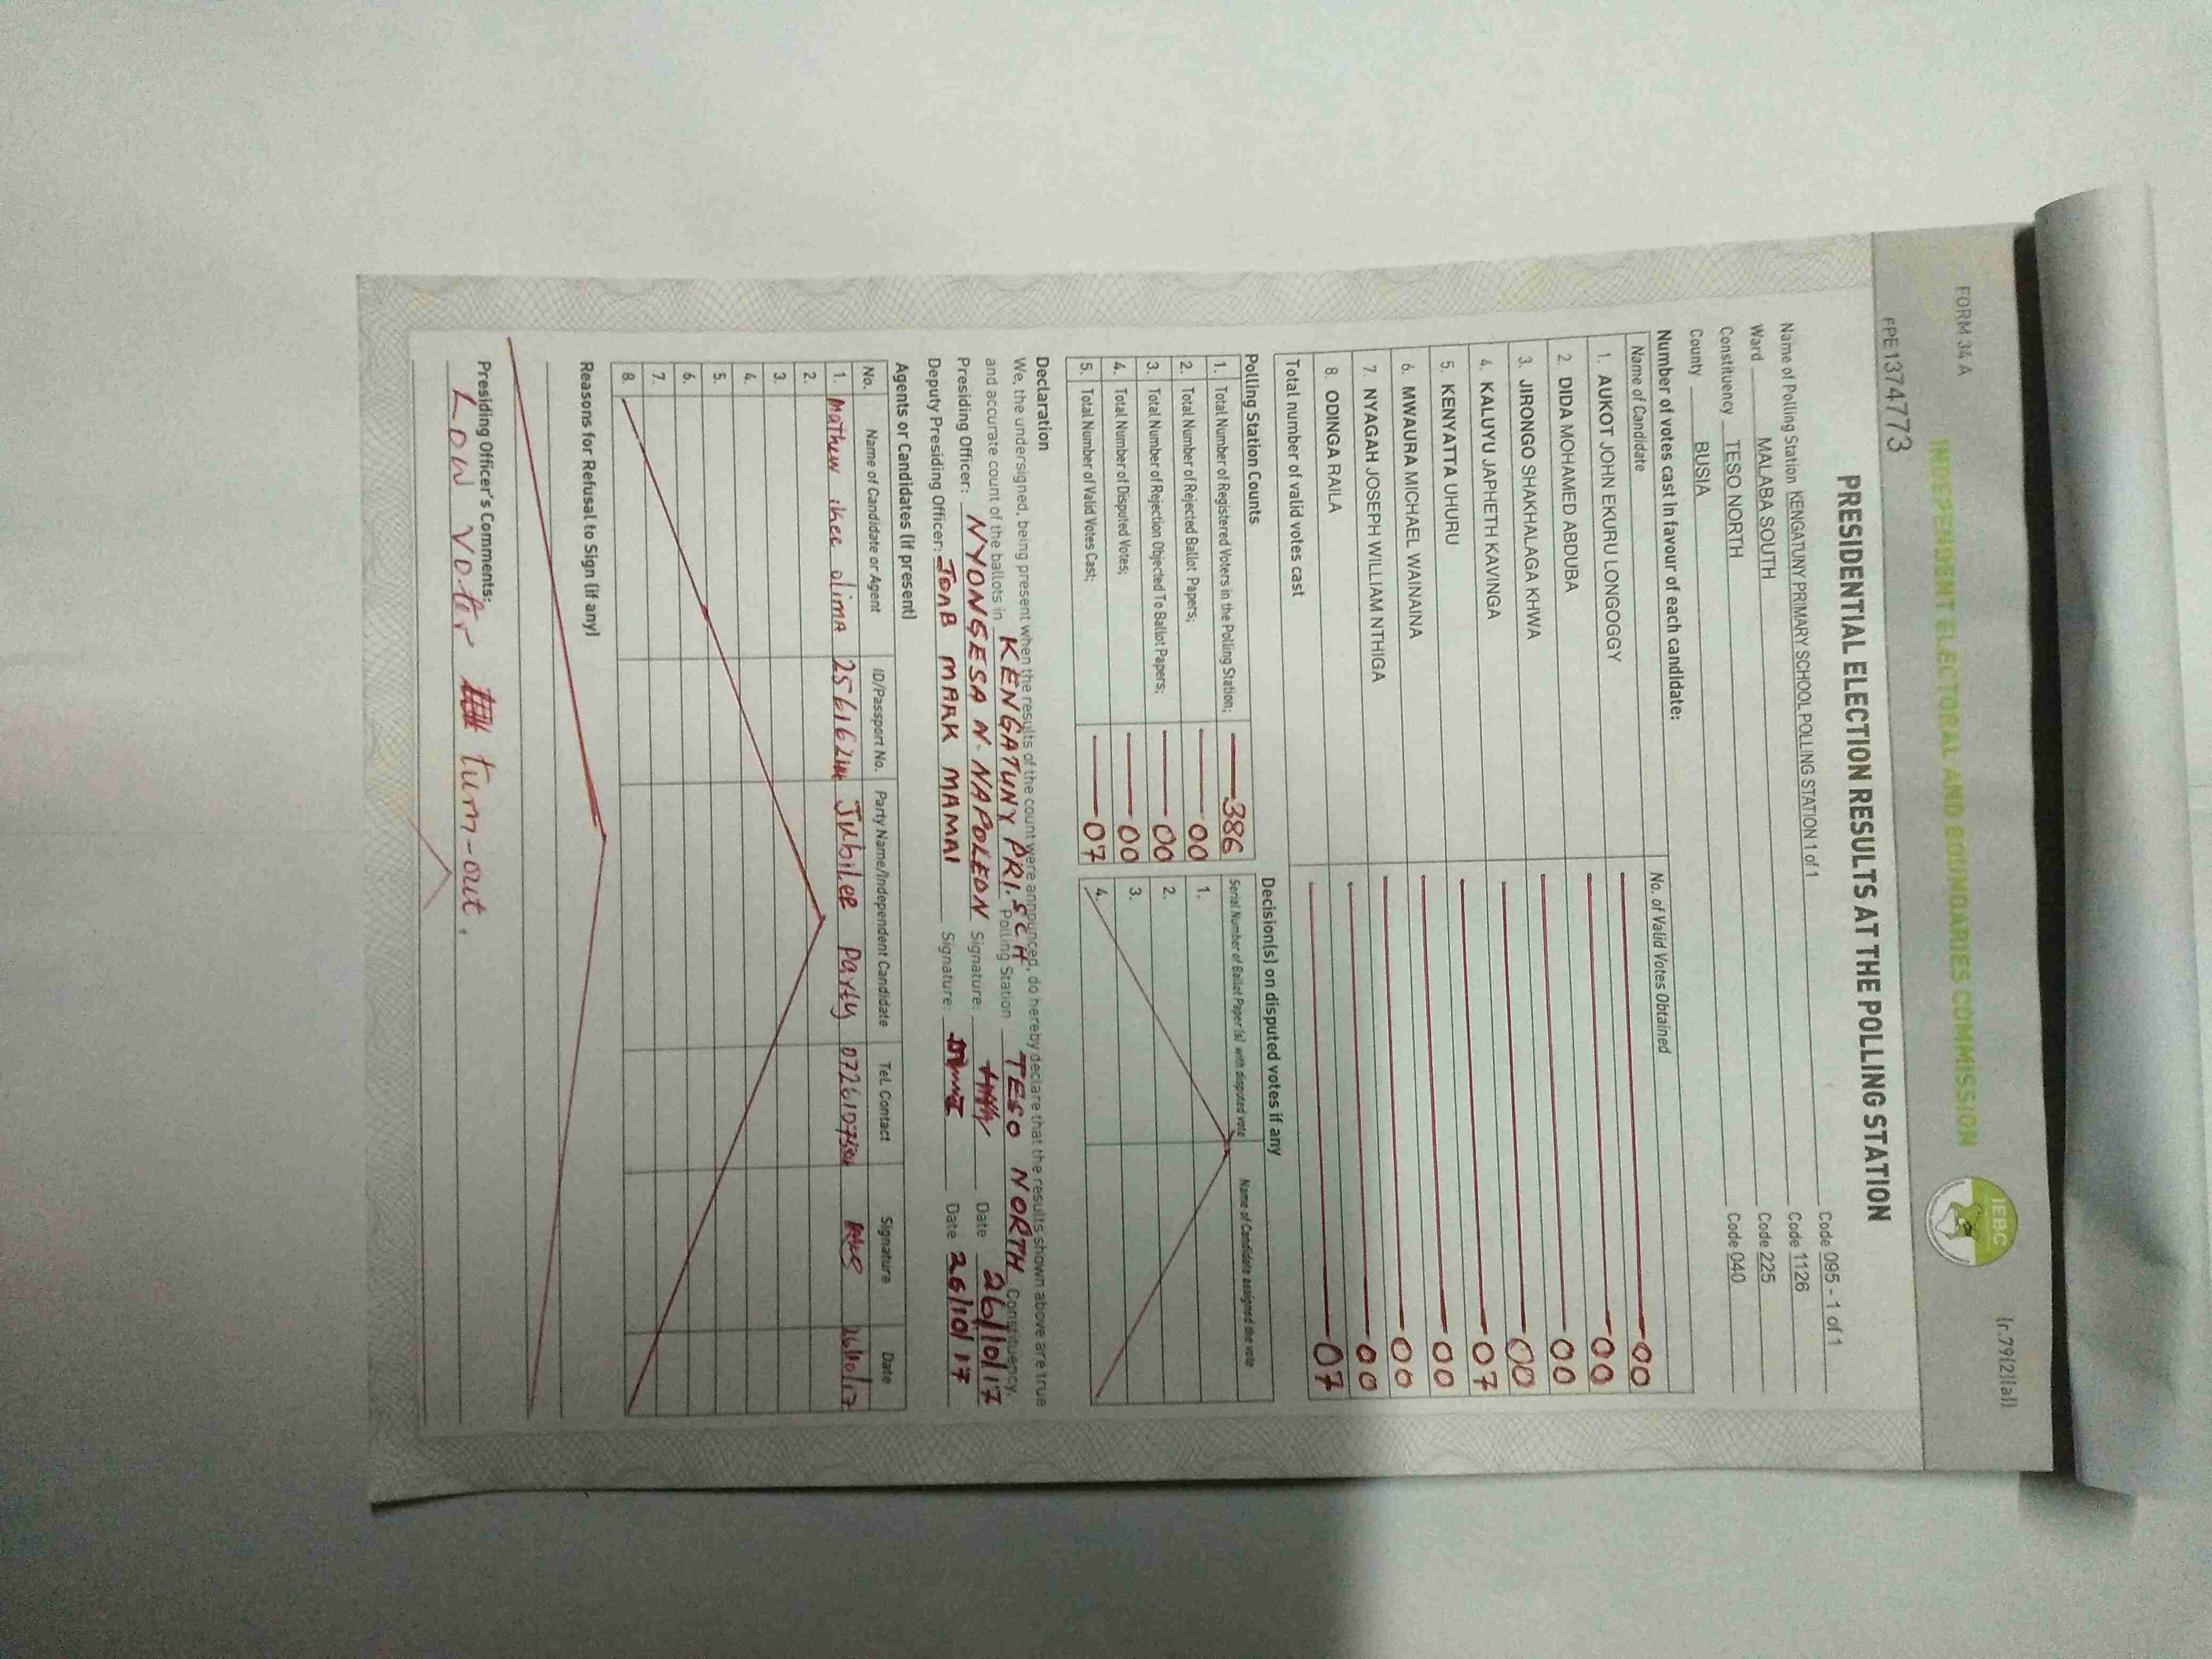 FORM 34 A
(r.79(2)(a))
INDEPENDENT ELECTORAL AND BOUNDARIES COMMISSION
IEBC
FPE1374773
PRESIDENTIAL ELECTION RESULTS AT THE POLLING STATION
Name of Polling Station KENGATUNY PRIMARY SCHOOL POLLING STATION 1 of 1 Code 095 - 1 of 1
Ward MALABA SOUTH Code 1126
Constituency TESO NORTH Code 225
County BUSIA Code 040
Number of votes cast in favour of each candidate:
Name of Candidate No. of Valid Votes Obtained
1. AUKOT JOHN EKURU LONGOGGY 00
2. DIDA MOHAMED ABDUBA 00
3. JIRONGO SHAKHALAGA KHWA 00
4. KALUYU JAPHETH KAVINGA 00
5. KENYATTA UHURU 07
6. MWAURA MICHAEL WAINAINA 00
7. NYAGAH JOSEPH WILLIAM NTHIGA 00
8. ODINGA RAILA 00
Total number of valid votes cast 07
Polling Station Counts
1. Total Number of Registered Voters in the Polling Station; 386
2. Total Number of Rejected Ballot Papers; 00
3. Total Number of Rejection Objected To Ballot Papers; 00
4. Total Number of Disputed Votes; 00
5. Total Number of Valid Votes Cast; 07
Decision(s) on disputed votes if any
Serial Number of Ballot Paper (s) with disputed vote Name of Candidate assigned the vote
1.
2.
3.
4.
Declaration
We, the undersigned, being present when the results of the count were announced, do hereby declare that the results shown above are true
and accurate count of the ballots in KENGATUNY PRI. SCH Polling Station TESO NORTH Constituency.
Presiding Officer: NYONGESA N. NAPOLEON Signature: Date 26/10/17
Deputy Presiding Officer: JOAB MARK MAMAI Signature: Date 26/10/17
Agents or Candidates (if present)
No. Name of Candidate or Agent ID/Passport No. Party Name/Independent Candidate Tel. Contact Signature Date
1. Mathew olima Jubilee Party 26/10/17
2.
3.
4.
5.
6.
7.
8.
Reasons for Refusal to Sign (if any)
Presiding Officer's Comments:
Low voter turn-out.